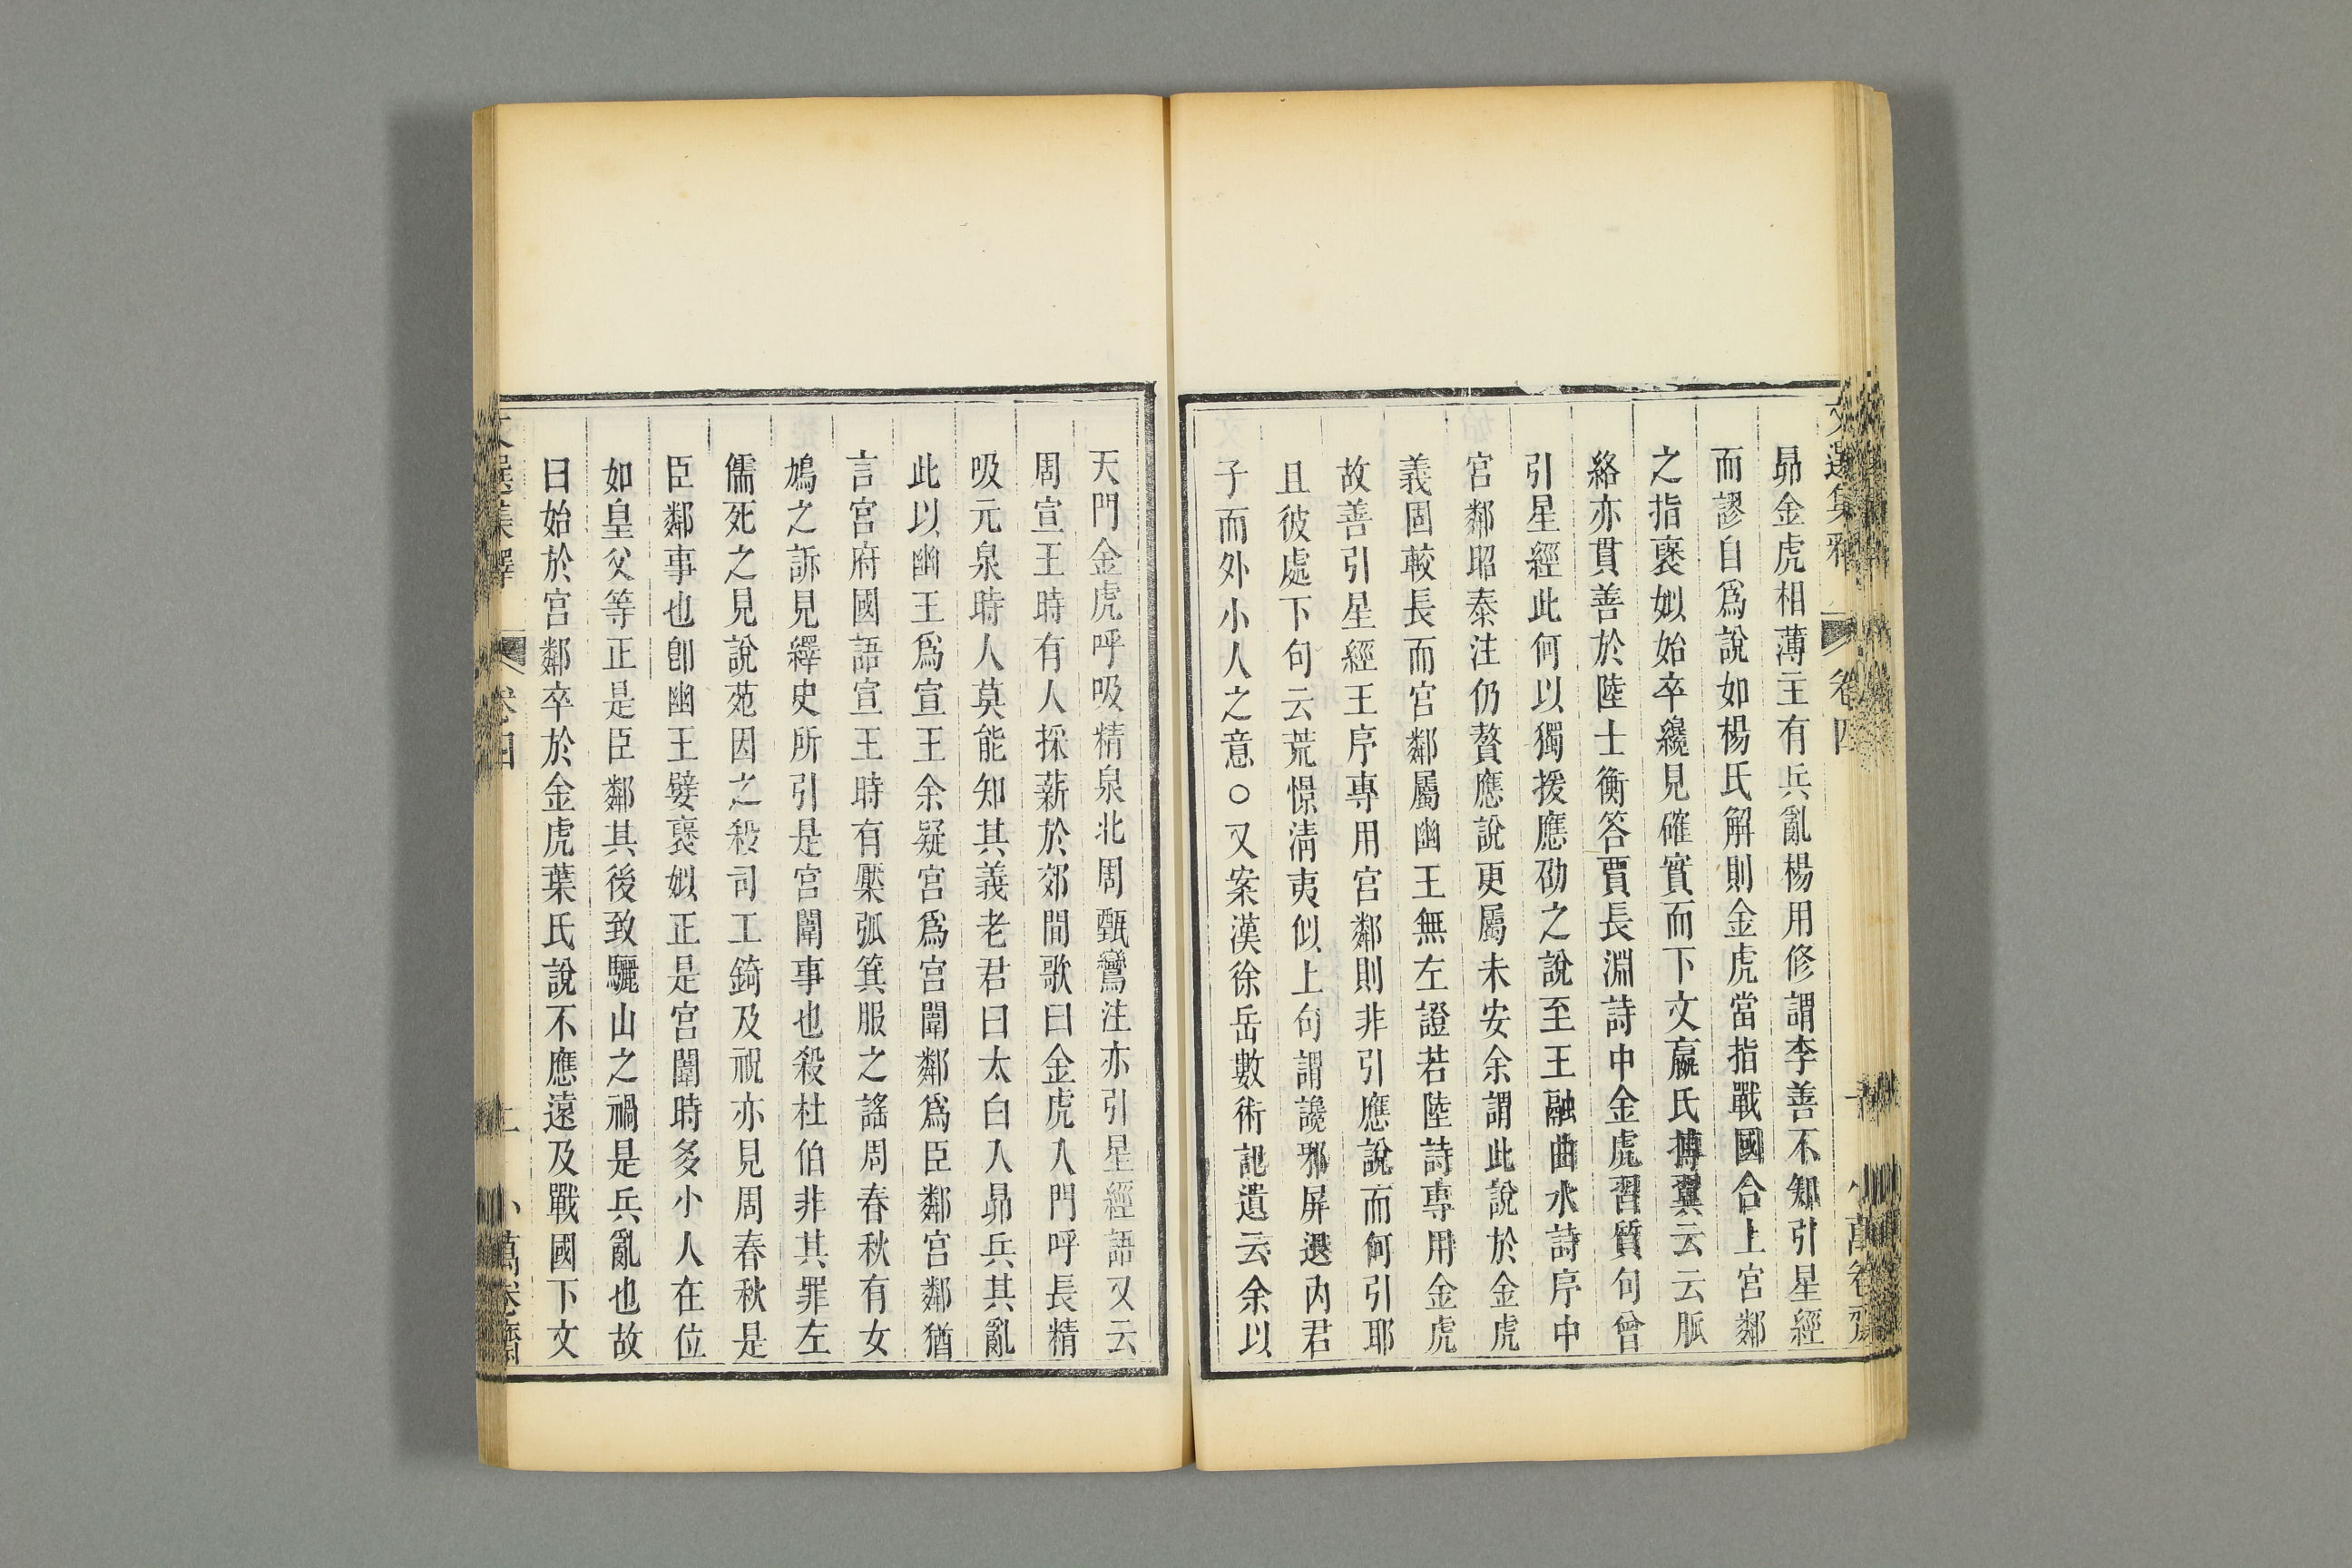 昴金虎相薄主有兵亂楊用修謂李善不知引星經
而謬自爲說如楊氏解則金虎當指戰國合上宮鄰
之指褒姒始卒纔見確實而下文嬴氏搏翼云云脈
絡亦貫善於陸士衡答賈長淵詩中金虎習質句曾
引星經此何以獨援應劭之說至王融曲水詩序中
宮鄰昭泰注仍贅應說更屬未安余謂此說於金虎
義固較長而宮鄰屬幽王無左證若陸詩專用金虎
故善引星經王序專用宮鄰則非引應說而何引耶
且彼處下句云荒憬淸夷似上句謂讒邪屏遏內君
子而外小人之意○又案漢徐岳數術記遺云余以
天門金虎呼吸精泉北周甄鸞注亦引星經語又云
周宣王時有人採薪於郊間歌曰金虎入門呼長精
吸元泉時人莫能知其義老君曰太白入昴兵其亂
此以幽王爲宣王余疑宮爲宮闈鄰爲臣鄰宮鄰猶
言宮府國語宣王時有檿弧箕服之謠周春秋有女
鳩之訴見繹史所引是宮闈事也殺杜伯非其罪左
儒死之見說苑因之殺司工錡及祝亦見周春秋是
臣鄰事也卽幽王嬖褒姒正是宮闈時多小人在位
如皇父等正是臣鄰其後致驪山之禍是兵亂也故
曰始於宮鄰卒於金虎葉氏說不應遠及戰國下文
文選集釋
卷四